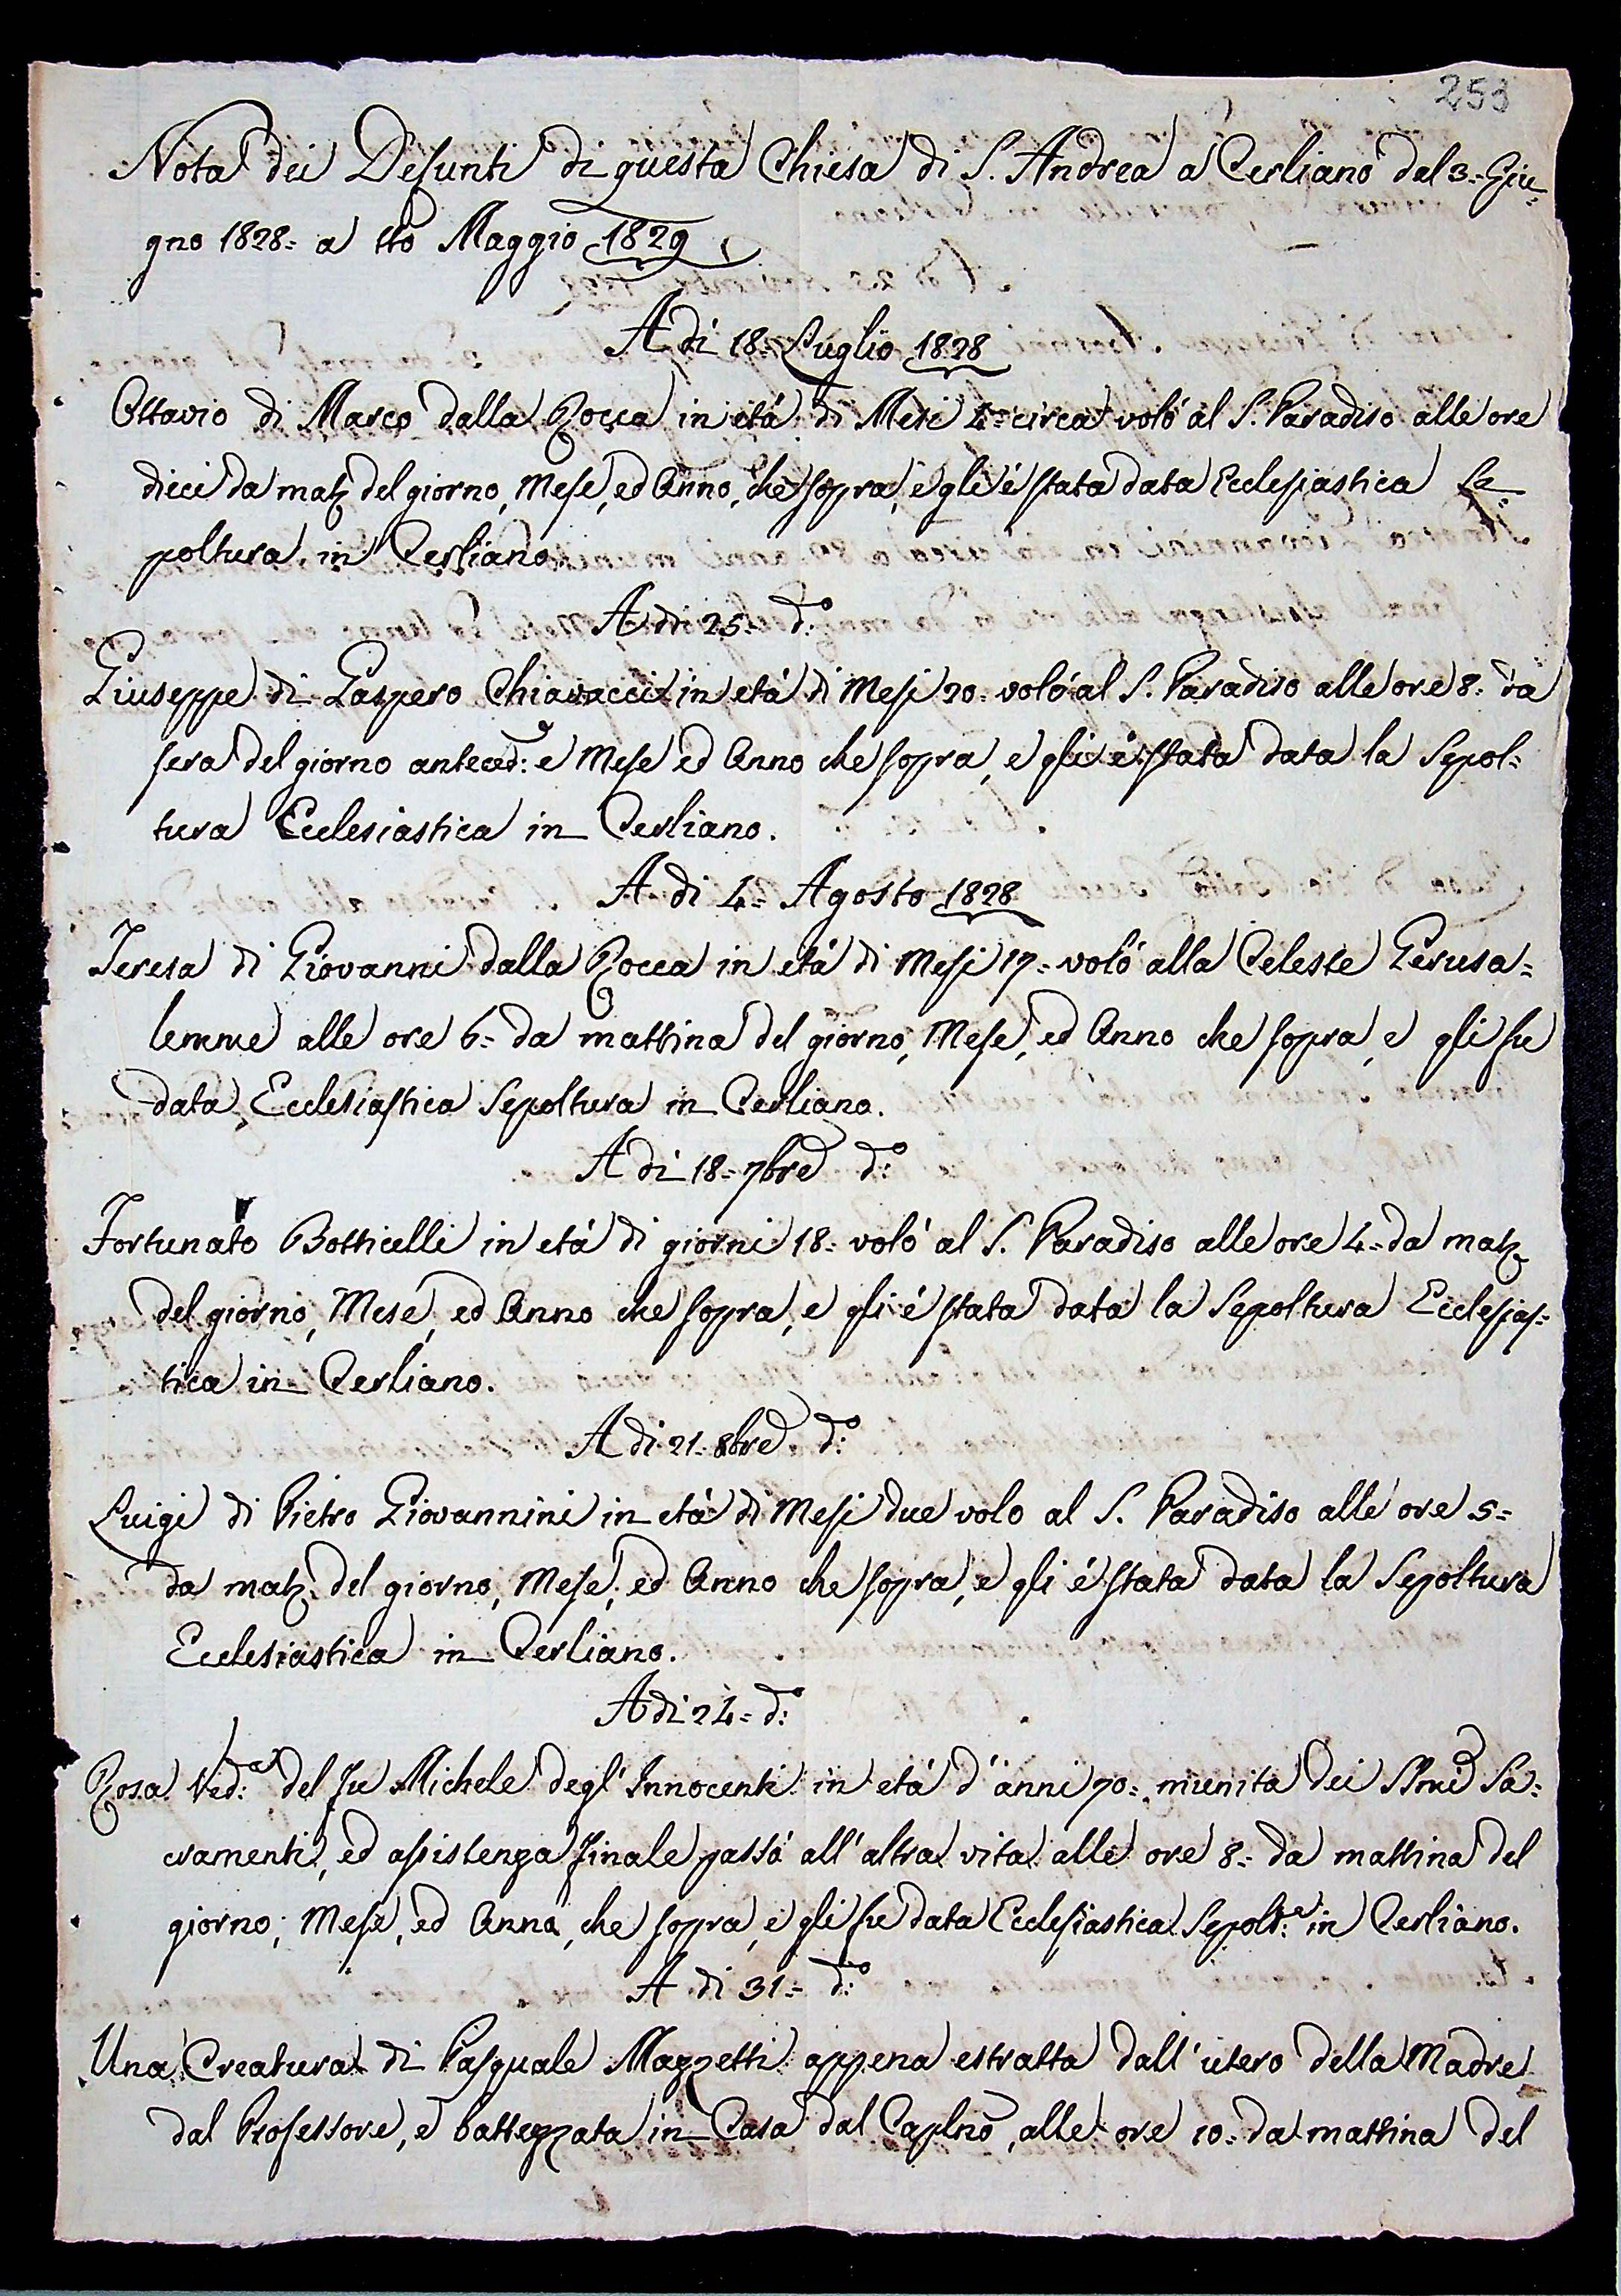 253
Nota dei Defunti di questa Chiesa di S. Andrea a Cerliano dal 3= Giu=
gno 1828= a tto Maggio 1829
A di 18= Luglio 1828
Ottavio di Marco dalla Rocca in etá di Mesi 4= circa voló al S. Paradiso alle ore
dieci da matt.ª del giorno, Mese, ed Anno, che sopra, e gli é stata data Ecclesiastica Se=
poltura in Cerliano.
A di 25= d.º
Giuseppe di Gaspero Chiavacci in etá di Mesi 20= voló al S. Paradiso alle ore 8= da
sera del giorno anteced: e Mese ed Anno che sopra, e gli é stata data la Sepol=
tura Ecclesiastica in Cerliano.
A di 4= Agosto 1828
Teresa di Giovanni dalla Rocca in etá di Mesi 17= voló alla Celeste Gerusa=
lemme alle ore 6= da mattina del giorno, Mese, ed Anno che sopra, e gli fu
data Ecclesiastica Sepoltura in Cerliano.
A di 18= 7bre d.º
Fortunato Botticelli in etá di giorni 18= voló al S. Paradiso alle ore 4= da matt.ª
del giorno, Mese, ed Anno che sopra, e gli é stata data la Sepoltura Ecclesias=
tica in Cerliano.
A di 21= 8bre d.º
Luigi di Pietro Giovannini in etá di Mesi due volo al S. Paradiso alle ore 5=
da matt.ª del giorno, Mese, ed Anno che sopra, e gli é stata data la Sepoltura
Ecclesiastica in Cerliano.
A di 24= d.º
Rosa Ved.ª del fu Michele degl' Innocenti in etá d' anni 70= munita dei SSmi Sa=
cramenti, ed assistenza finale passó all' altra vita alle ore 8= da mattina del
giorno, Mese, ed Anno, che sopra, e gli fu data Ecclesiastica Sepolt.ª in Cerliano.
A di 31= d.º
Una Creatura di Pasquale Mazzetti appena estratta dall' utero della Madre
dal Professore, e battezzata in Casa dal Caplno, alle ore 10= da mattina del